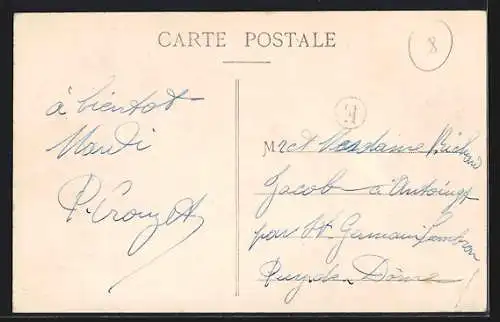 CARTE POSTALE
8
à bientot
Mardi
P. Crouzet
M et Madame Richard
Jacob à Antoingt
par St Germain Lembron
Puy de Dôme